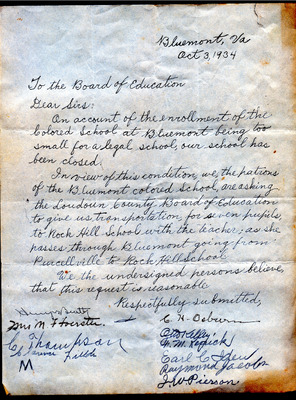 Bluemont, Va
Oct 3, 1934
To the Board of Education
Dear Sirs:
On account of the enrollment of the
Colored School at Bluemont being too
small for a legal school, our school has
been closed.
In view of this condition, we, the patrons
of the Bluemont colored School, are asking
the Loudoun County Board of Education
to give us transportation, for seven pupils,
to Rock Hill School with the teacher; as she
passes through Bluemont going from
Purcellville to Rock Hill School
We the undersigned persons believe,
that this request is reasonable
Respectfully submitted,
Mrs M
C. H. Osburn
C Thompson
Earl C
Raymond Jacobs
M
J. W Pierson